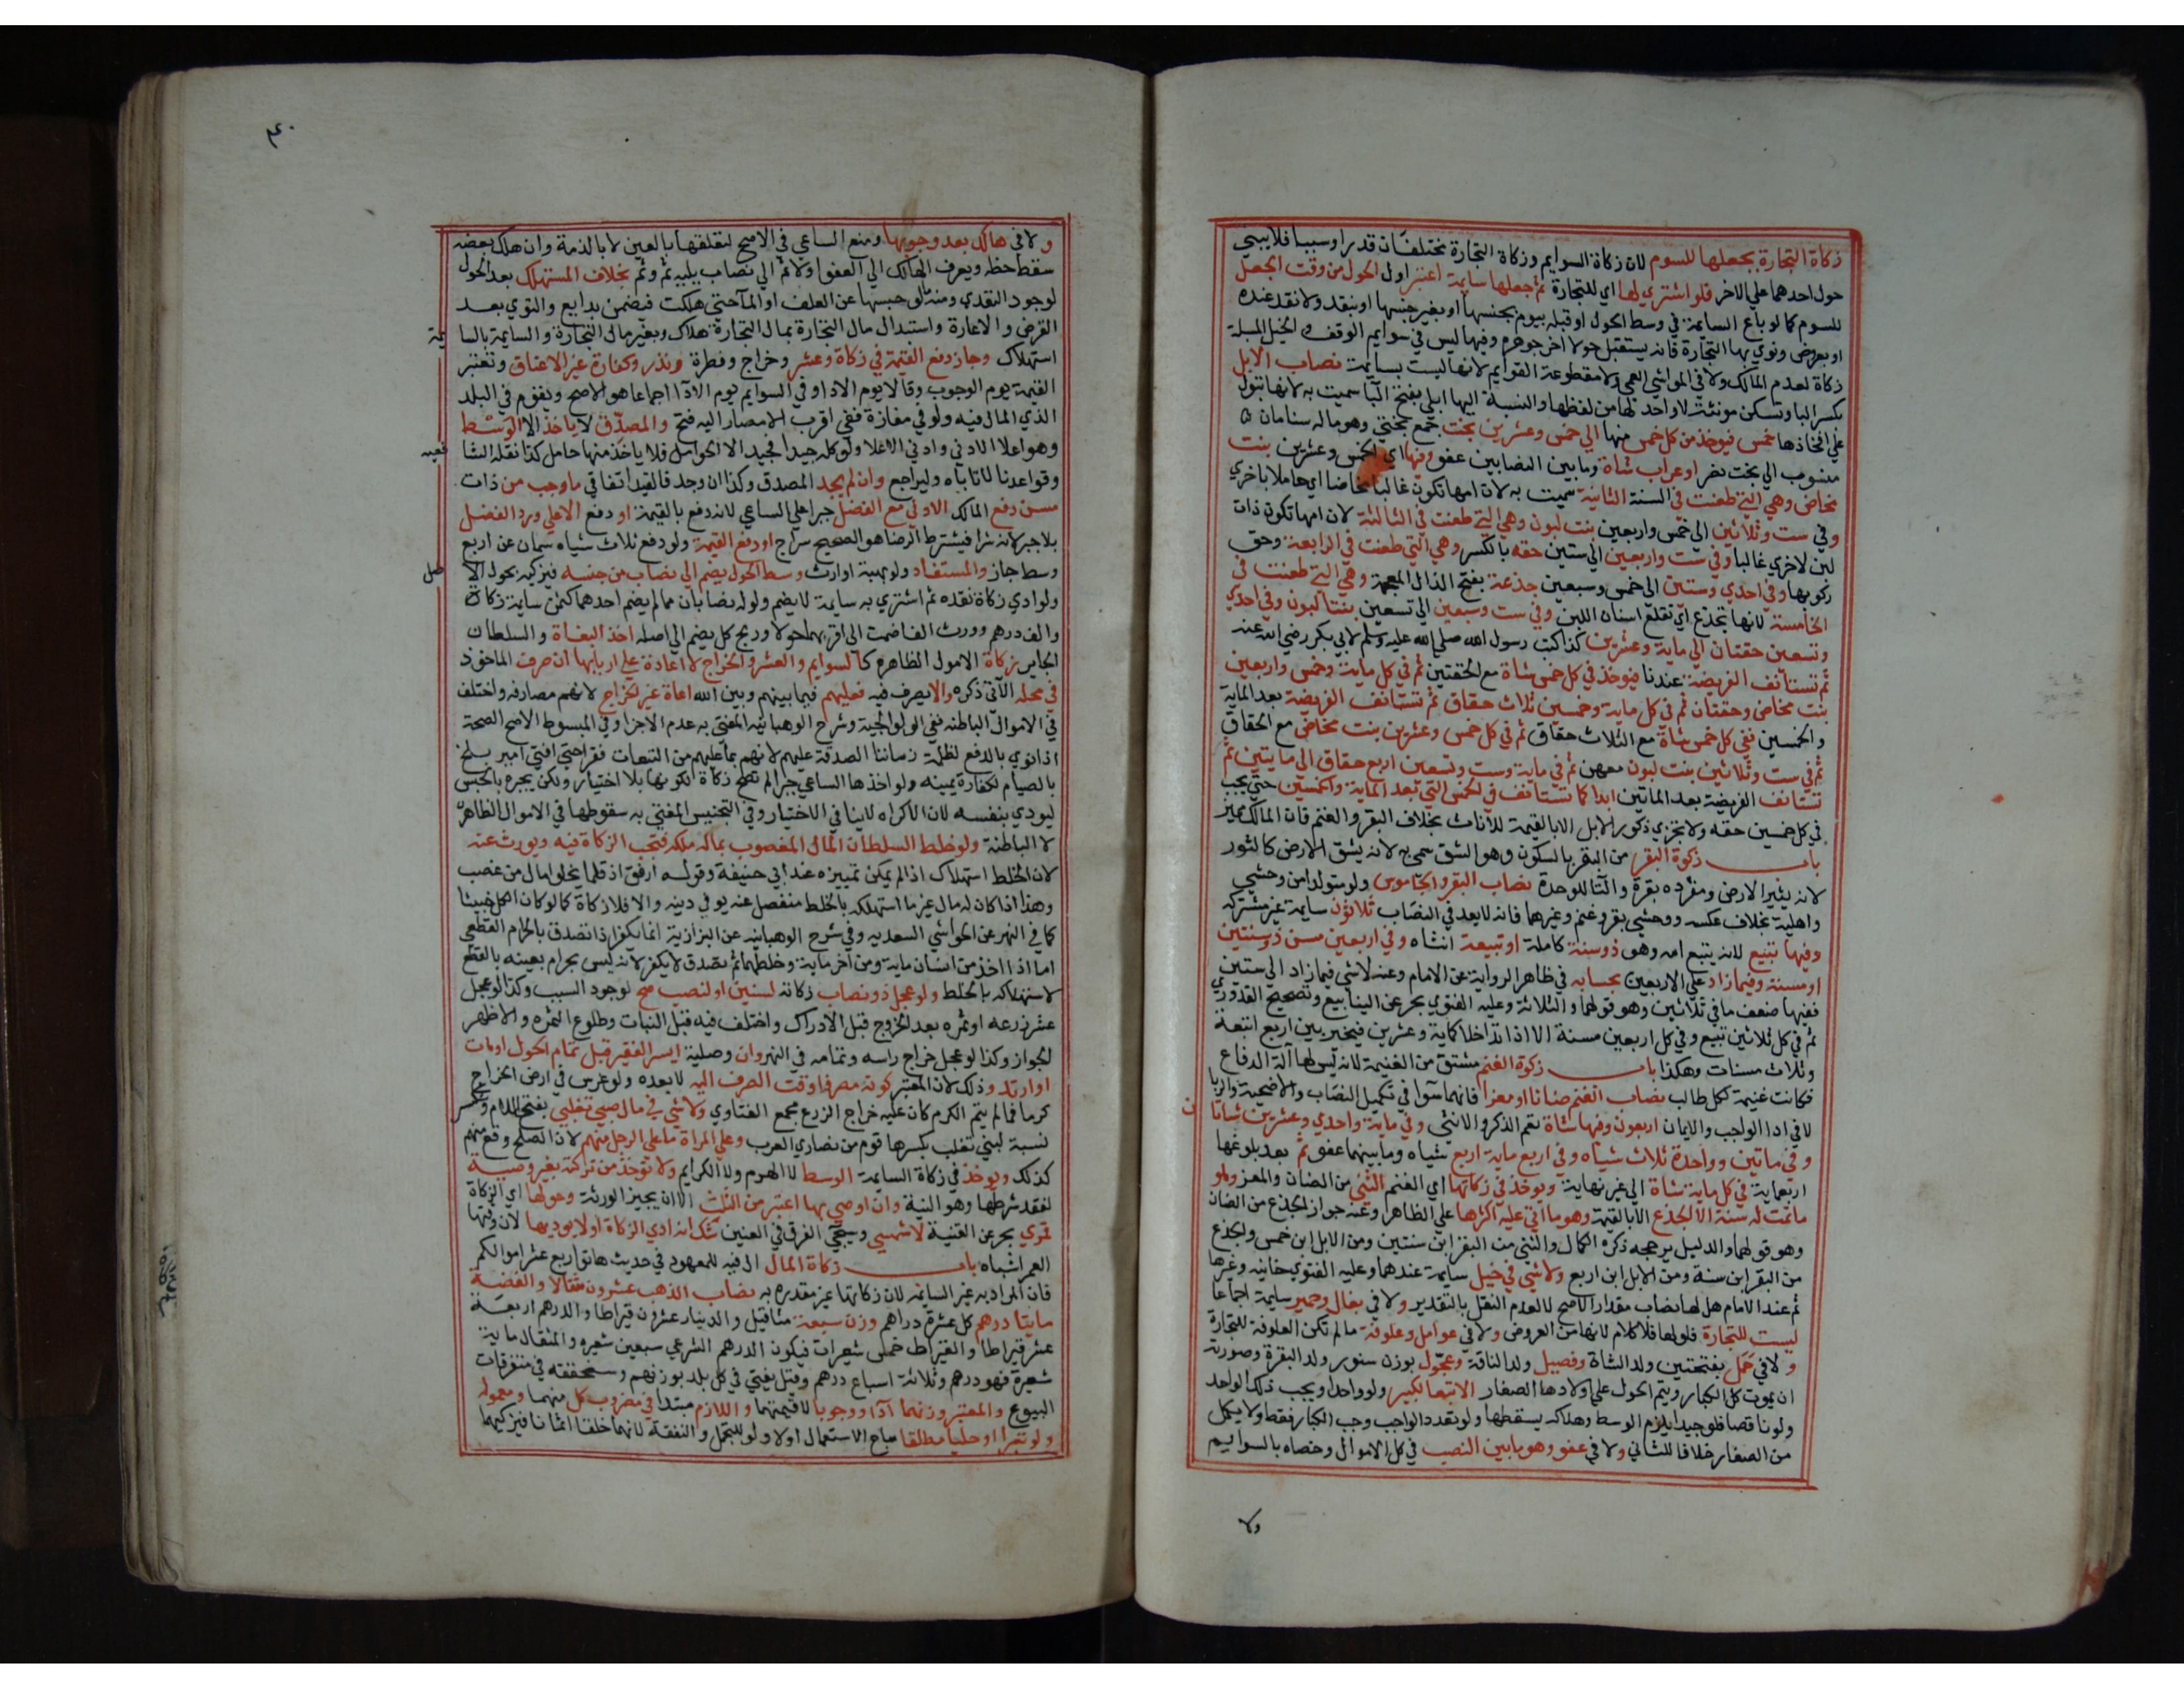 زكاة التجارة بجعلها للسوم لان زكاة السوايم وزكاة التجارة مختلفتان قدرا وسببا فلا يبني
حول احدهما علي الاخر فلو اشتري لها اي للتجارة ثم جعلها سايمة اعتبر اول الحول من وقت الجعل
للسوم كما لو باع السايمة في وسط الحول او قبله بيوم بجنسها او بغير جنسها او بنقد ولا نقد عنده
او بعروض ونوي بها التجارة فانه يستقبل حولا اخر جوهره وفيها ليس في سوايم الوقف والخيل المسبلة
زكاة لعدم المالك ولا في المواشي العمي ولا مقطوعة القوايم لانها ليست بسايمة نصاب الابل
بكسر البا وتسكن مونثة لا واحد لها من لفظها والنسبة اليها ابلي بفتح البا سميت به لانها تبول
علي افخاذها خمس فيوخذ من كل خمس منها الي خمس وعشرين بخت جمع بختي وهو ماله سنامان
منسوب الي بخت نصر او عراب شاة وما بين النصابين عفو وفيها اي الخمس وعشرين بنت
مخاض وهي التي طعنت في السنة الثانية سميت به لان امها تكون غالبا مخاضا اي حاملا باخري
وفي ست وثلاثين الي خمس واربعين بنت لبون وهي التي طعنت في الثالثة لان امها تكون ذات
لبن لاخري غالبا وفي ست واربعين الي ستين حقه بالكسر وهي التي طعنت في الرابعة وحق
ركوبها وفي احدي وستين الي خمس وسبعين جذعة بفتح الذال المعجمة وهي التي طعنت في
الخامسة لانها تجذع اي تقلع اسنان اللبن وفي ست وسبعين الي تسعين بنتا لبون وفي احدي
وتسعين حقتان الي ماية وعشرين كذا كتب رسول الله صلي الله عليه وسلم لابي بكر رضي الله عنه
ثم تستانف الفريضة عندنا فيوخذ في كل خمس شاة مع الحقتين ثم في كل ماية وخمس واربعين
بنت مخاض وحقتان ثم في كل ماية وخمسين ثلاث حقاق ثم تستانف الفريضة بعد الماية
والخمسين ففي كل خمس شاة مع الثلاث حقاق ثم في كل خمس وعشرين بنت مخاض مع الحقاق
ثم في ست وثلاثين بنت لبون معهن ثم في ماية وست وتسعين اربع حقاق الي مايتين ثم
تستانف الفريضة بعد الماتين ابدا كما تستانف في الخمس التي بعد الماية والخمسين حتي يجب
في كل خمسين حقه ولا تجزي ذكور الابل الا بالقيمة للاناث بخلاف البقر والغنم فان المالك مخير
باب زكوة البقر من البقر بالسكون وهو الشق سمي به لانه يشق الارض كالثور
لانه يثير الارض ومفرده بقرة والتا للوحدة نصاب البقر والجاموس ولو متولدا من وحشي
واهلية بخلاف عكسه ووحشي بقر وغنم وغيرهما فانه لا يعد في النصاب ثلاثون سايمة غير مشتركة
وفيها تبيع لانه يتبع امه وهو ذو سنة كاملة او تبيعة انثاه وفي اربعين مسن ذو سنتين
او مسنة وفيما زاد علي الاربعين بحسابه في ظاهر الرواية عن الامام وعنه لا شي فيما زاد الي ستين
ففيها ضعف ما في ثلاثين وهو قولهما والثلاثة وعليه الفتوي بحر عن الينابيع وتصحيح القدوري
ثم في كل ثلاثين تبيع وفي كل اربعين مسنة الا اذا تداخلا كماية وعشرين فيخير بين اربع اتبعة
وثلاث مسنات وهكذا باب زكوة الغنم مشتق من الغنيمة لانه ليس لها آلة الدفاع
فكانت غنيمة لكل طالب نصاب الغنم ضانا او معزا فانهما سوا في تكميل النصاب والاضحية والربا
لا في ادا الواجب والايمان اربعون وفيها شاة تعم الذكر والانثي وفي ماية واحدي وعشرين شاتان
وفي ماتين وواحدة ثلاث شياه وفي اربع ماية اربع شياه وما بينهما عفو ثم بعد بلوغها
اربعماية في كل ماية شاة الي غير نهاية ويوخذ في زكاتها اي الغنم الثني من الضان والمعز وهو
ما تمت له سنة لا الجذع الا بالقيمة وهو ما اتي عليه اكثرها علي الظاهر وعنه جواز الجذع من الضان
وهو قولهما والدليل يرجحه ذكره الكمال والثني من البقر ابن سنتين ومن الابل ابن خمس والجذع
من البقر ابن سنة ومن الابل ابن اربع ولا شي في خيل سايمة عندهما وعليه الفتوي خانيه وغيرها
ثم عند الامام هل لها نصاب مقدار الاصح لا لعدم النقل بالتقدير ولا في بغال وحمير سايمة اجماعا
ليست للتجارة فلو لها فلا كلام لانها من العروض ولا في عوامل وعلوفة ما لم تكن العلوفة للتجارة
ولا في حمل بفتحتين ولد الشاة وفصيل ولد الناقة وعجول بوزن سنور ولد البقرة وصورته
ان يموت كل الكبار ويتم الحول علي اولادها الصغار الا تبعا لكبير ولو واحدا ويجب ذلك الواحد
ولو ناقصا فلو جيدا يلزم الوسط وهلاكه يسقطها ولو تعدد الواجب وجب الكبار فقط ولا يكمل
من الصغار خلافا للثاني ولا في عفو وهو ما بين النصب في كل الاموال وخصاه بالسوايم
ولا
٤٠
ولا في هالك بعد وجوبها ومنع الساعي في الاصح لتعلقها بالعين لا بالذمة وان هلك بعضه
سقط حظه ويصرف الهالك الي العفو اولا ثم الي نصاب يليه ثم وثم بخلاف المستهلك بعد الحول
لوجود التعدي ومنه ما لو حبسها عن العلف او الما حتي هلكت فيضمن بدايع والتوي بعد
القرض والاعارة واستبدال مال التجارة بمال التجارة هلاك وبغير مال التجارة والسايمة بالسايمة
استهلاك وجاز دفع القيمة في زكاة وعشر وخراج وفطرة ونذر وكفارة غير الاعتاق وتعتبر
القيمة يوم الوجوب وقالا يوم الادا وفي السوايم يوم الادا اجماعا هو الاصح ويقوم في البلد
الذي المال فيه ولو في مفازة ففي اقرب الامصار اليه فتح والمصدق لا ياخذ الا الوسط
وهو اعلا الادني وادني الاعلا ولو كله جيدا فجيد الا الحوامل فلا ياخذ منها حامل كذا نقله الشافعيه
وقواعدنا لا تاباه وليراجع وان لم يجد المصدق وكذا ان وجد فالقيد اتفاقي ما وجب من ذات
مسن دفع المالك الادني مع الفضل جبرا علي الساعي لانه دفع بالقيمة او دفع الاعلي ورد الفضل
بلا جبر لانه شرا فيشترط الرضا هو الصحيح سراج او دفع القيمة ولو دفع ثلاث شياه سمان عن اربع
وسط جاز والمستفاد ولو بهبة او ارث وسط الحول يضم الي نصاب من جنسه فيزكيه بحول الاصل
ولو ادي زكاة نقده ثم اشتري به سايمة لا يضم ولو له نصابان مما لم يضم احدهما كثمن سايمة زكاة
والف درهم وورث الفا ضمت الي اقربهما حولا وربح كل يضم الي اصله اخذ البغاة والسلطان
الجاير زكاة الامول الظاهره كالسوايم والعشر والخراج لا اعادة علي اربابها ان صرف الماخوذ
في محله الآتي ذكره والا يصرف فيه فعليهم فيما بينهم وبين الله اعاة غير الخراج لانهم مصارفه واختلف
في الاموال الباطنه ففي الولوالجية وشرح الوهبانيه المفتي به عدم الاجزا وفي المبسوط الاصح الصحة
اذا نوي بالدفع لظلمة زماننا الصدقة عليهم لانهم بما عليهم من التبعات فقرا حتي افتي امير بلخ
بالصيام لكفارة يمينه ولو اخذها الساعي جبرا لم تصح زكاة لكونها بلا اختيار ولكن يجبره بالحبس
ليودي بنفسه لان الاكراه لا ينافي الاختيار وفي التجنيس المفتي به سقوطها في الاموال الظاهره
لا الباطنة ولو خلط السلطان المال المغصوب بماله ملكه فتجب الزكاة فيه ويورث عنه
لان الخلط استهلاك اذا لم يمكن تمييزه عند ابي حنيفة وقوله ارفق اذ قلما يخلو مال من غصب
وهذا اذا كان له مال غير ما استهلكه بالخلط منفصل عنه يوفي دينه والا فلا زكاة كما لو كان الكل خبيثا
كما في النهر عن الحواشي السعديه وفي شرح الوهبانيه عن البزازية انما يكفر اذا تصدق بالحرام القطعي
اما اذا اخذ من انسان ماية ومن آخر ماية وخلطهما ثم تصدق لا يكفر لانه ليس بحرام بعينه بالقطع
لاستهلاكه بالخلط ولو عجل ذو نصاب زكاته لسنين او لنصب صح لوجود السبب وكذا لو عجل
عشر زرعه او ثمره بعد الخروج قبل الادراك واختلف فيه قبل النبات وطلوع الثمره والاظهر
الجواز وكذا لو عجل خراج راسه وتمامه في النهر وان وصلية ايسر الفقير قبل تمام الحول او مات
او ارتد وذلك لان المعتبر كونه مصرفا وقت الصرف اليه لا بعده ولو غرس في ارض الخراج
كرما فما لم يتم الكرم كان عليه خراج الزرع مجمع الفتاوي ولا شي في مال صبي تغلبي بفتح اللام وتكسر
نسبة لبني تغلب بكسرها قوم من نصاري العرب وعلي المراة ما علي الرجل منهم لان الصلح وقع منهم
كذلك ويوخذ في زكاة السايمة الوسط لا الهرم ولا الكرايم ولا توخذ من تركته بغير وصية
لفقد شرطها وهو النية وان اوصي بها اعتبر من الثلث الا ان يجيز الورثة وحولها اي الزكاة
قمري بحر عن القنية لا شمسي وسيجي الفرق في العنين شك انه ادي الزكاة اولا يوديها لان وقتها
العمر اشباه باب زكاة المال ال فيه للمعهود في حديث هاتوا ربع عشر اموالكم
فان المراد به غير السايمه لان زكاتها غير مقدره به نصاب الذهب عشرون مثقالا والفضة
مايتا درهم كل عشرة دراهم وزن سبعة مثاقيل والدينار عشرون قيراطا والدرهم اربعة
عشر قيراطا والقيراط خمس شعيرات فيكون الدرهم الشرعي سبعين شعيره والمثقال ماية
شعيرة فهو درهم وثلاثة اسباع درهم وقيل يفتي في كل بلد بوزنهم وسنحققه في متفرقات
البيوع والمعتبر وزنهما ادا ووجوبا لا قيمتهما واللازم مبتدا في مضروب كل منهما ومعموله
ولو تبرا او حليا مطلقا مباح الاستعمال اولا ولو للتجمل والنفقة لانهما خلقا اثمانا فيزكيهما